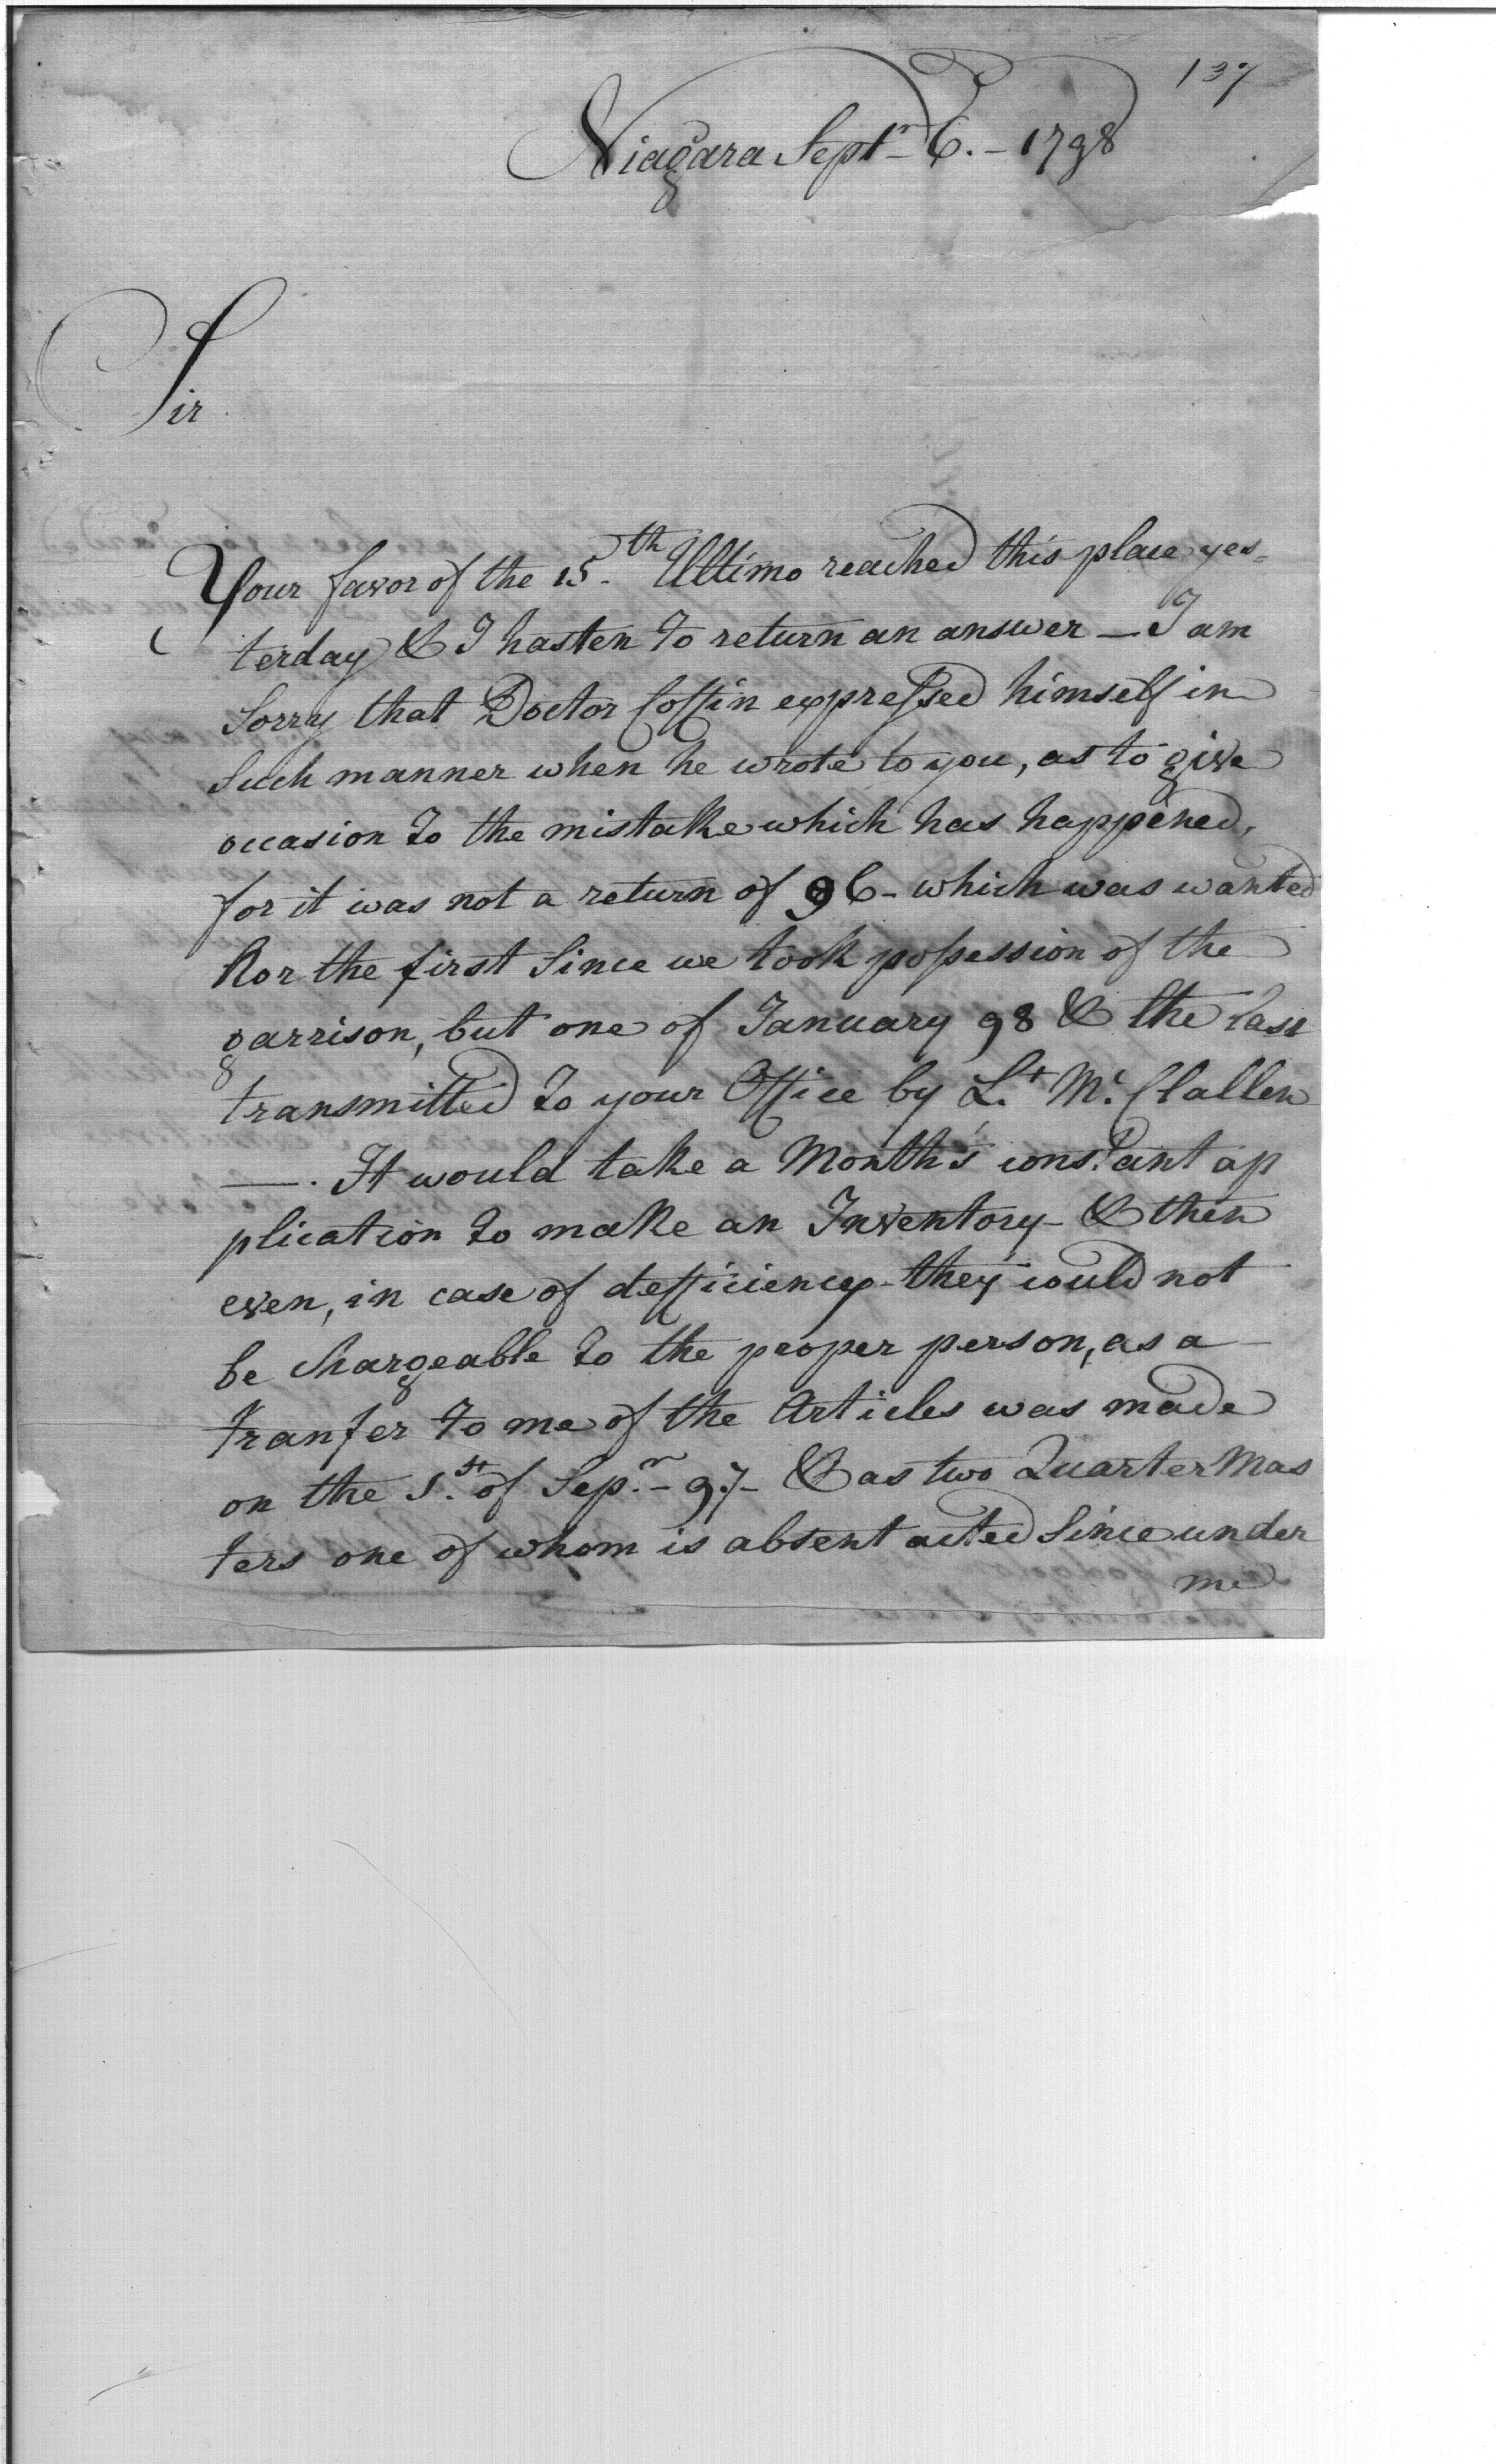 137
Niagara Septr 6. - 1798
Sir
Your favor of the 15.th Ultimo reached this place yes-
terday & I hasten to return an answer — I am
Sorry that Doctor Coffin expressed himself in
Such manner when he wrote to you, as to give
occasion to the mistake which has happened,
for it was not a return of 96 - which was wanted
Nor the first Since we took possession of the
garrison, but one of January 98 & the last
transmitted to your Office by L.t Mc. Clallen
—. It would take a Month's constant ap
plication to make an Inventory - & then
even, in case of defficiency - they could not
be Chargeable to the proper person, as a
tranfer to me of the Articles was made
on the 1.st of Sep.r - 97 - & as two Quarter Mas
ters one of whom is absent acted Since under
me